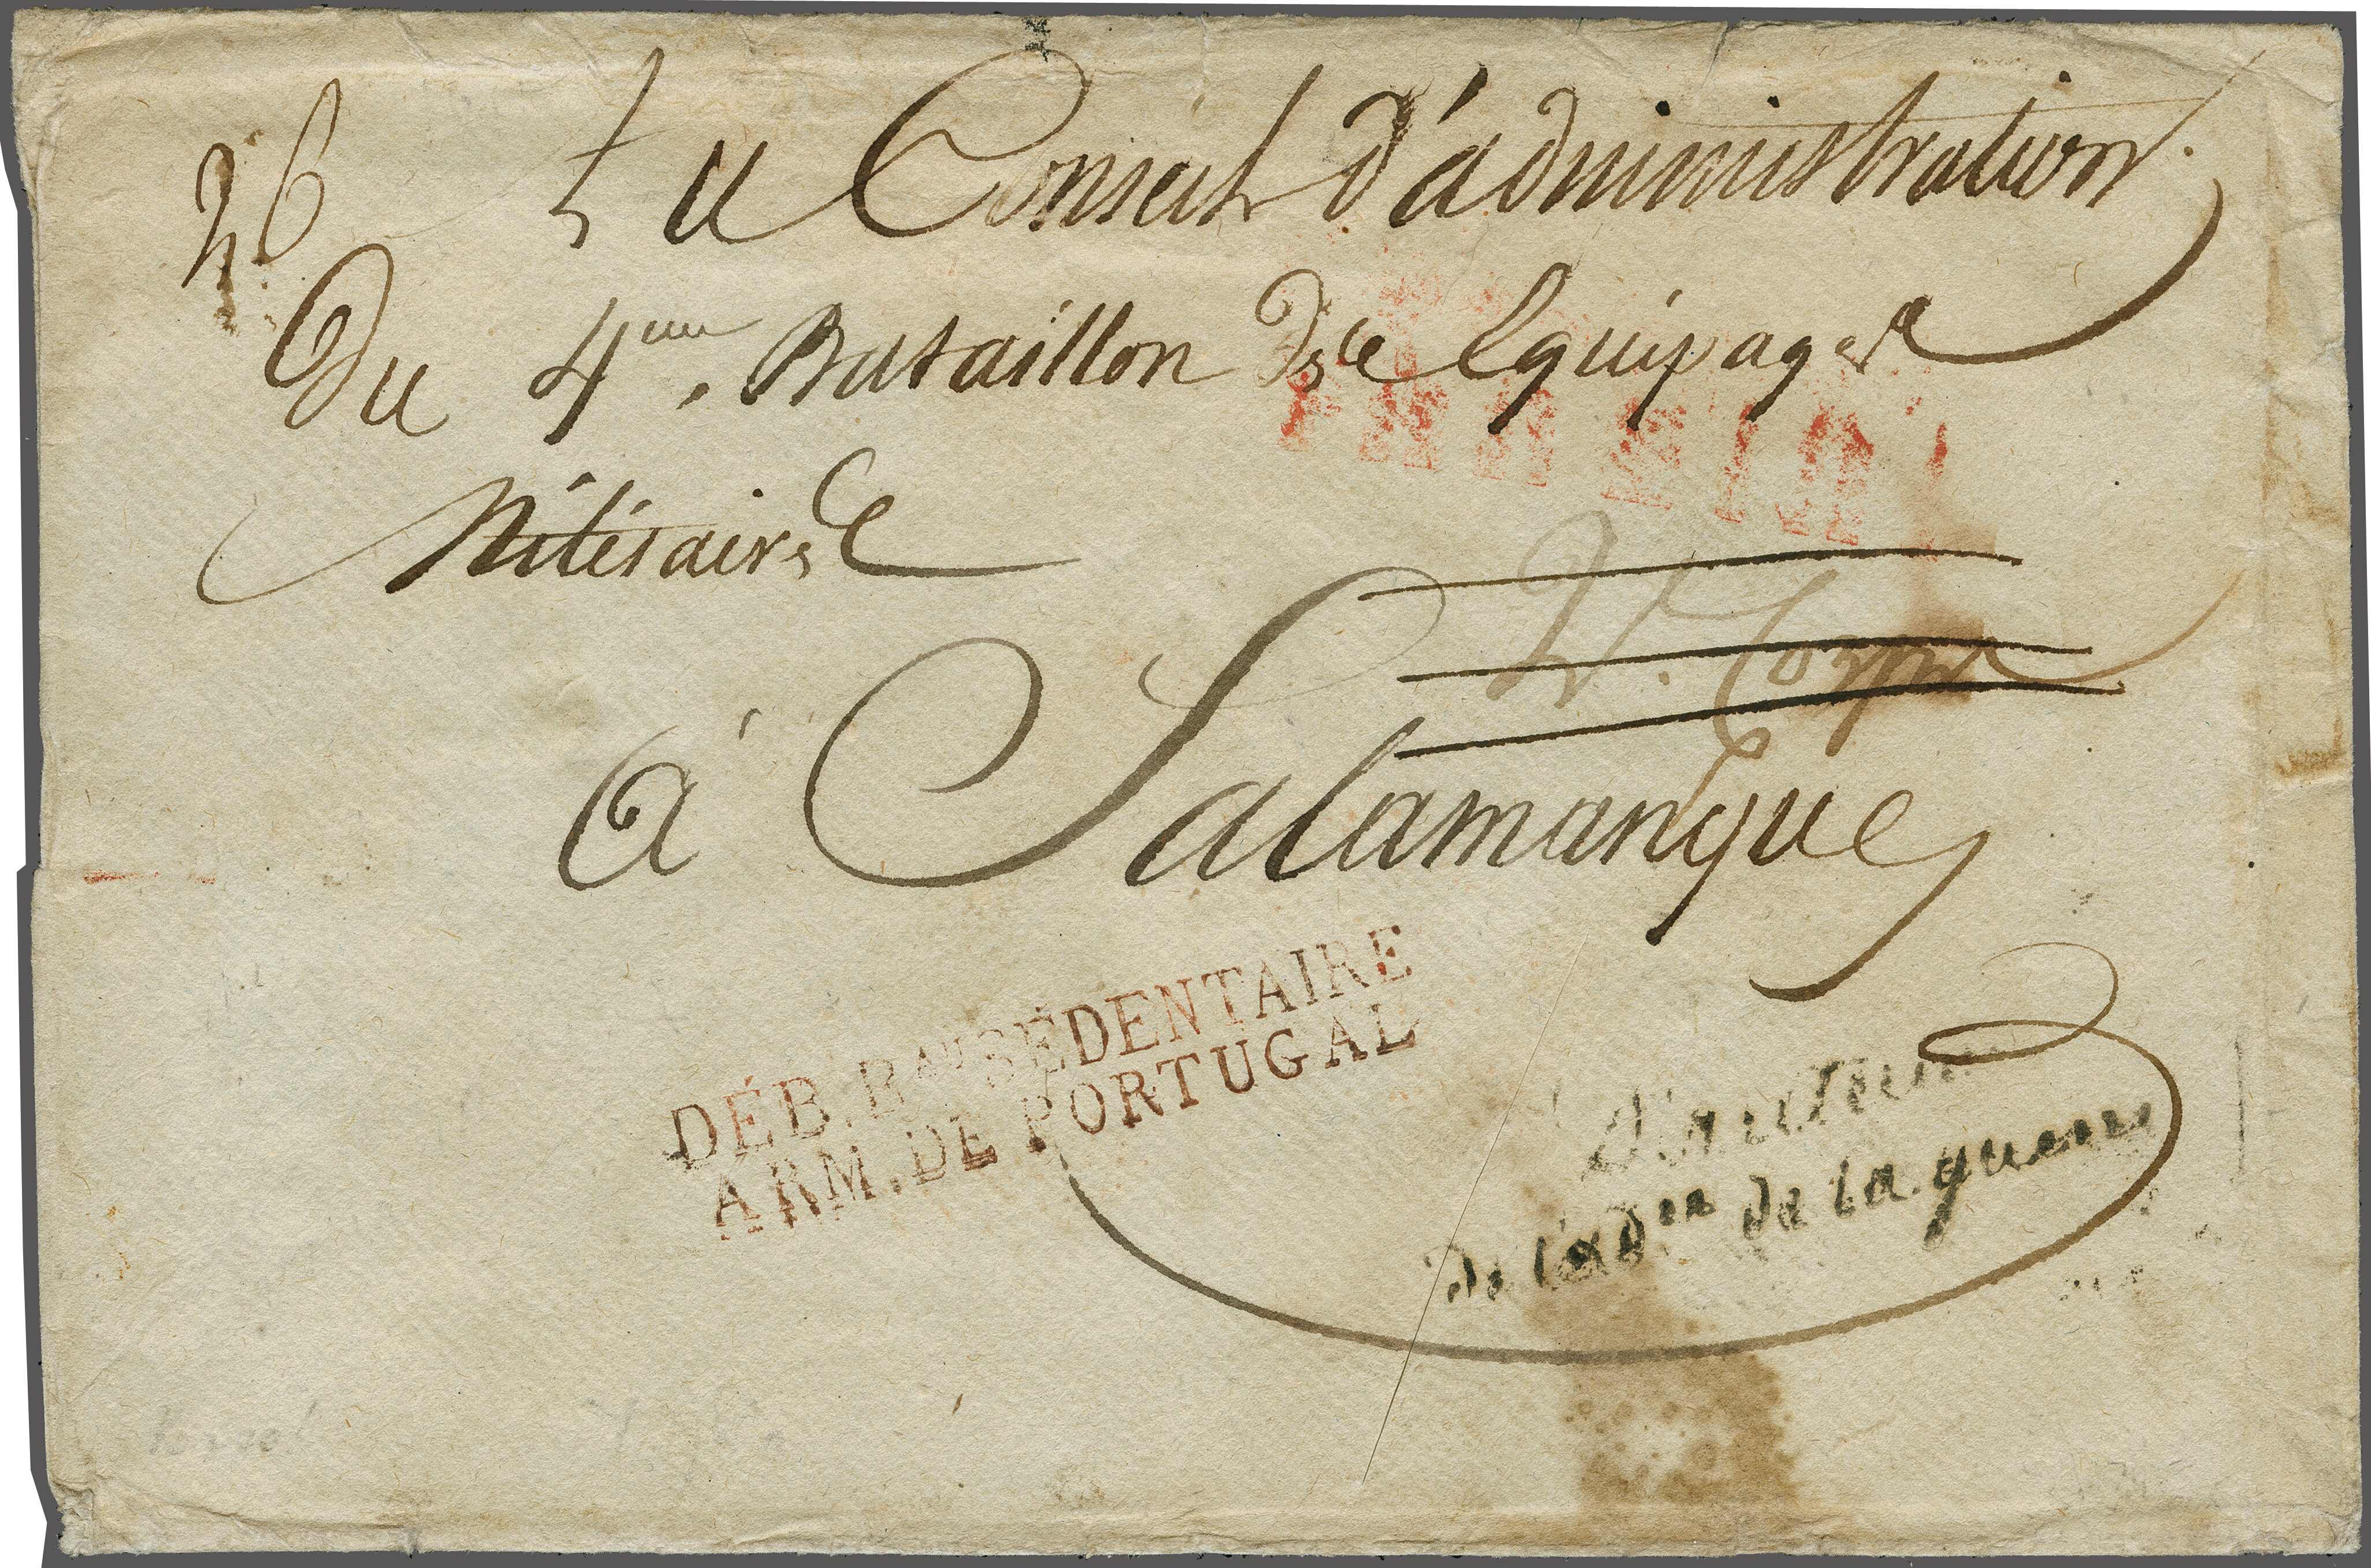 26
Au Conseil d'administration.
Du 4me. Bataillon De Equipages
Militaires
2e. Corps
à Salamanque
DÉB. Bau SÉDENTAIRE
ARM. DE PORTUGAL
Directeur
de l'adon de la guerre